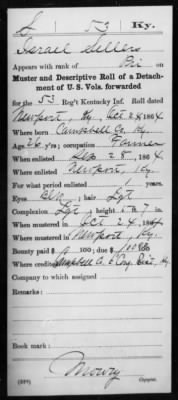 S 53 Ky.
Israel Sellers
Appears with rank of Pri on
Muster and Descriptive Roll of a Detach-
ment of U. S. Vols. forwarded
for the 53 Reg't Kentucky Inf. Roll dated
Newport, Ky., Oct 24, 1864
Where born Campbell Co. Ky.
Age 26 y'rs; occupation Farmer
When enlisted Sep 28, 1864
Where enlisted Newport, Ky.
For what period enlisted years.
Eyes Blu; hair Lgt
Complexion Lgt; height 5 ft. 7 in.
When mustered in Oct 24, 1864
Where mustered in Newport, Ky.
Bounty paid $ 100; due $ 100
Where credited Campbell Co. 6 Cong. Dist. Ky.
Company to which assigned
Remarks:
Book mark:
Mowry
Copyist.